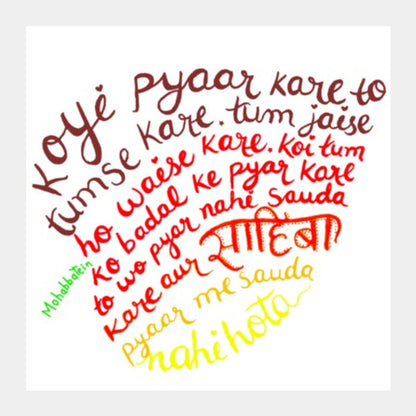 koyi pyaar kare to
tumse kare. tum jaise
ho waise kare. koi tum
ko badal ke pyar kare
to wo pyar nahi sauda
kare aur साहिबा
pyaar me sauda
nahi hota
Mohabbatein